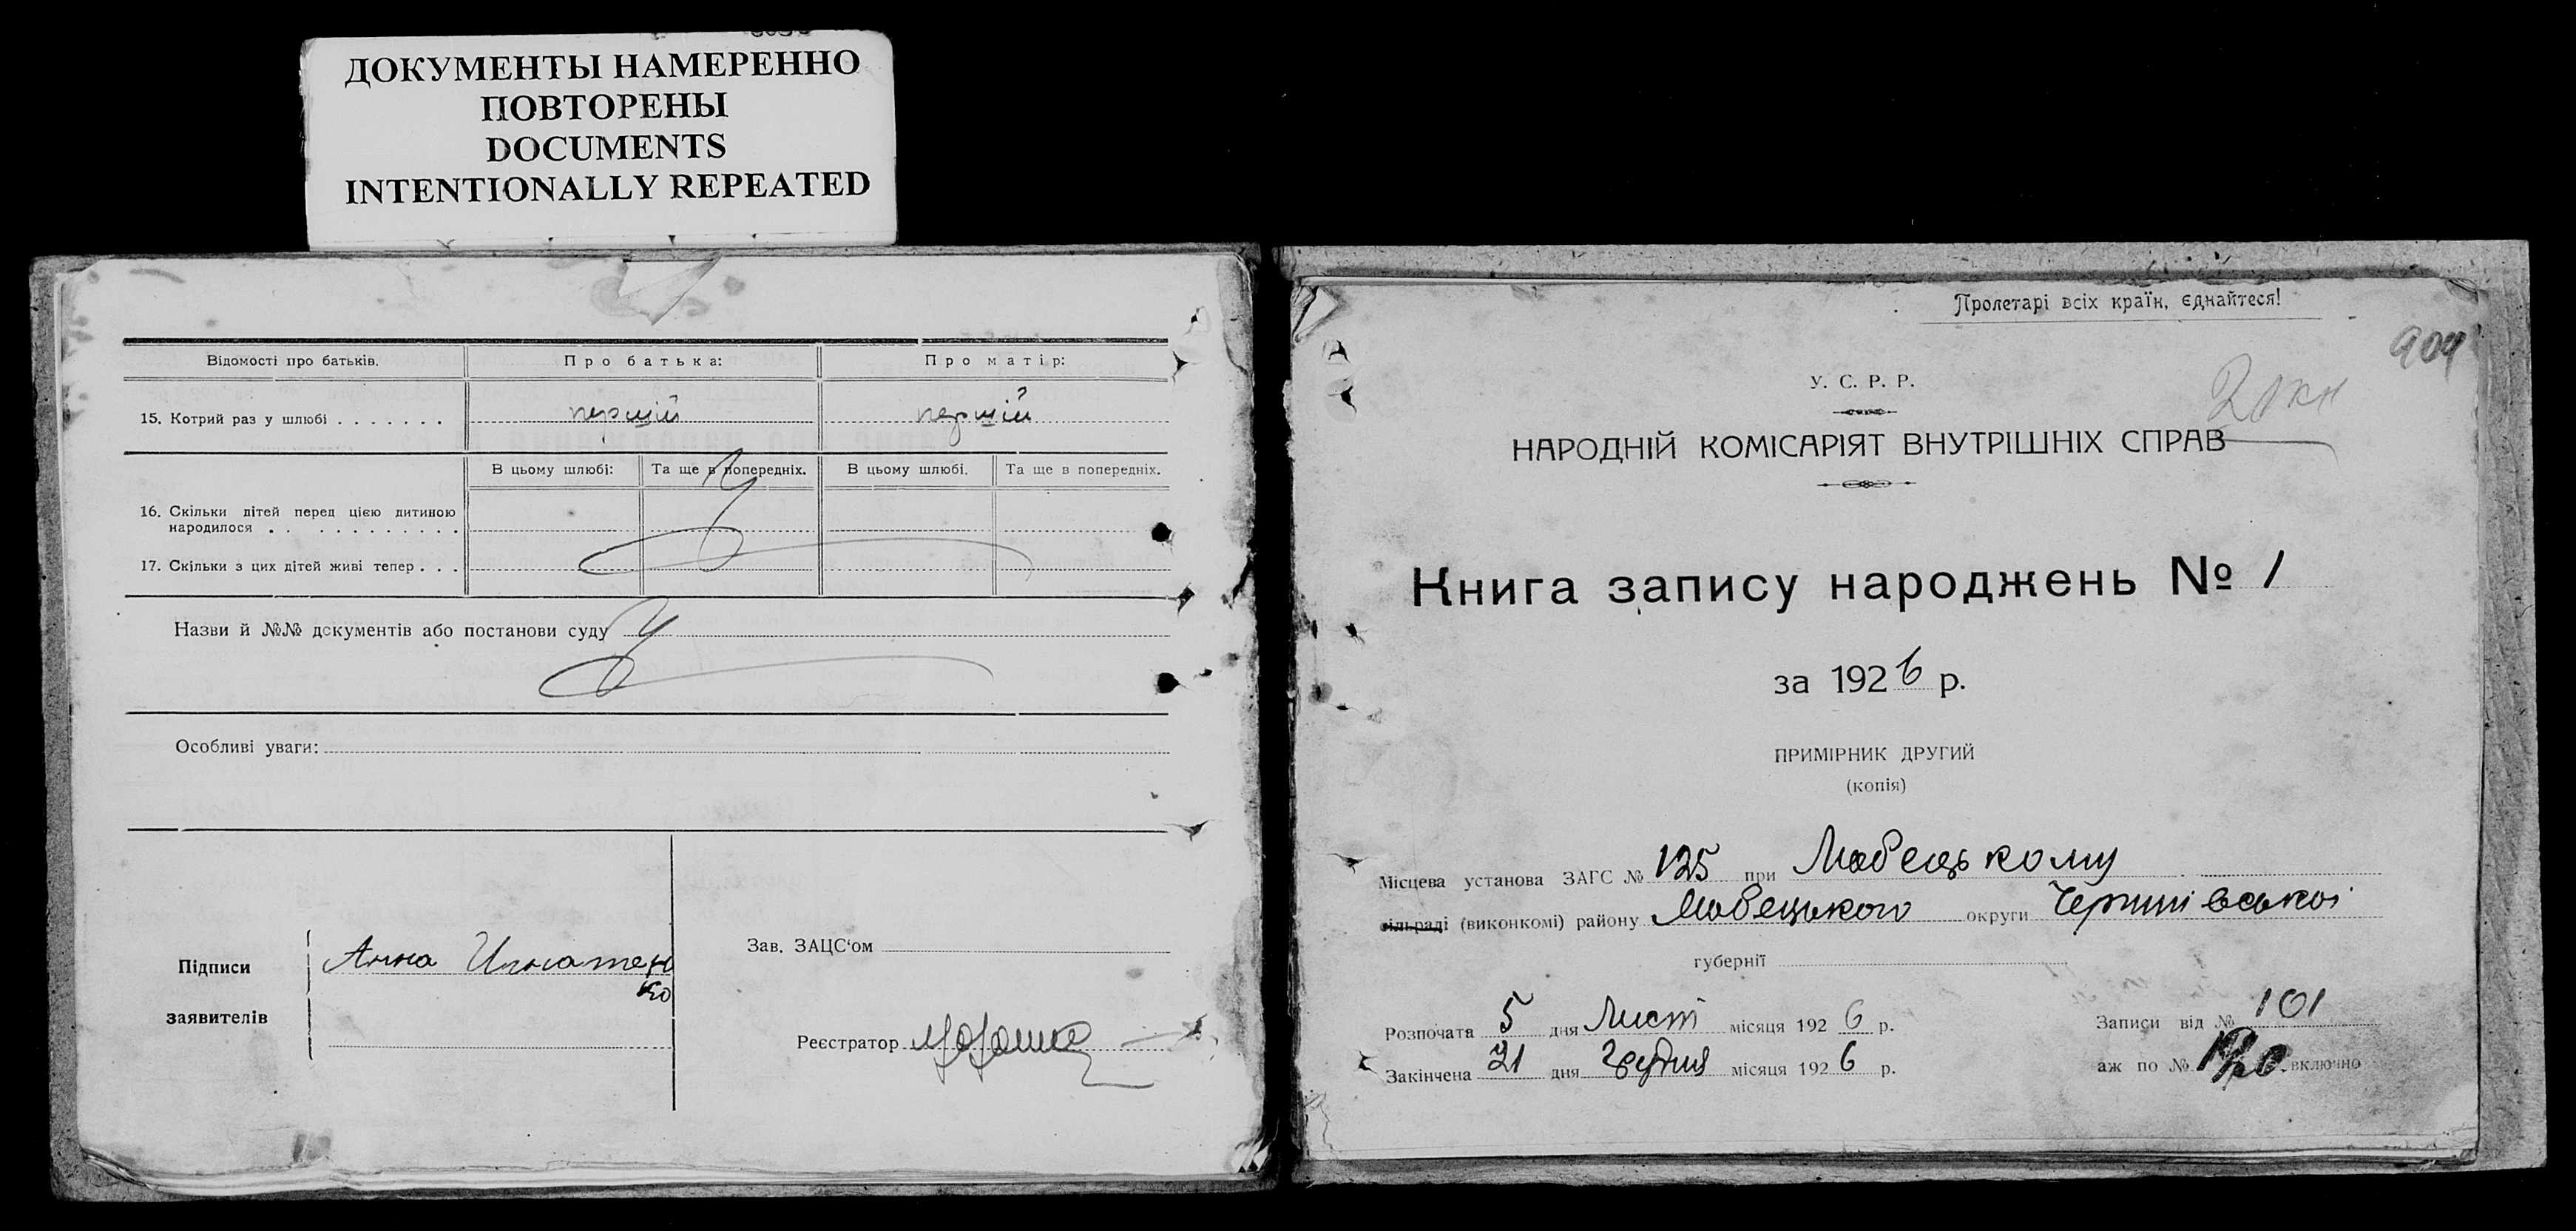 ДОКУМЕНТЫ НАМЕРЕННО
ПОВТОРЕНЫ
DOCUMENTS
INTENTIONALLY REPEATED
Відомості про батьків. Про батька: Про матір:
15. Котрий раз у шлюбі . . . . . . . першій першій
В цьому шлюбі: Та ще в попередніх. В цьому шлюбі. Та ще в попередніх.
16. Скільки дітей перед цією дитиною
народилося . . . . . . . . . . .
17. Скільки з цих дітей живі тепер . . .
Назви й №№ документів або постанови суду
Особливі уваги:
Підписи
заявителів
Анна Игнатен
ко
Зав. ЗАЦС‘ом
Реєстратор
Пролетарі всіх країн, єднайтеся!
904
У. С. Р. Р.
НАРОДНІЙ КОМІСАРІЯТ ВНУТРІШНІХ СПРАВ
Книга запису народжень № 1
за 1926 р.
ПРИМІРНИК ДРУГИЙ
(копія)
Місцева установа ЗАГС № 125 при Любецькому
сільраді (виконкомі) району Любецького округи Чернигівської
губернії
Розпочата 5 дня Лист місяця 1926 р. Записи від № 101
Закінчена 21 дня Грудня місяця 1926 р. аж по № включно